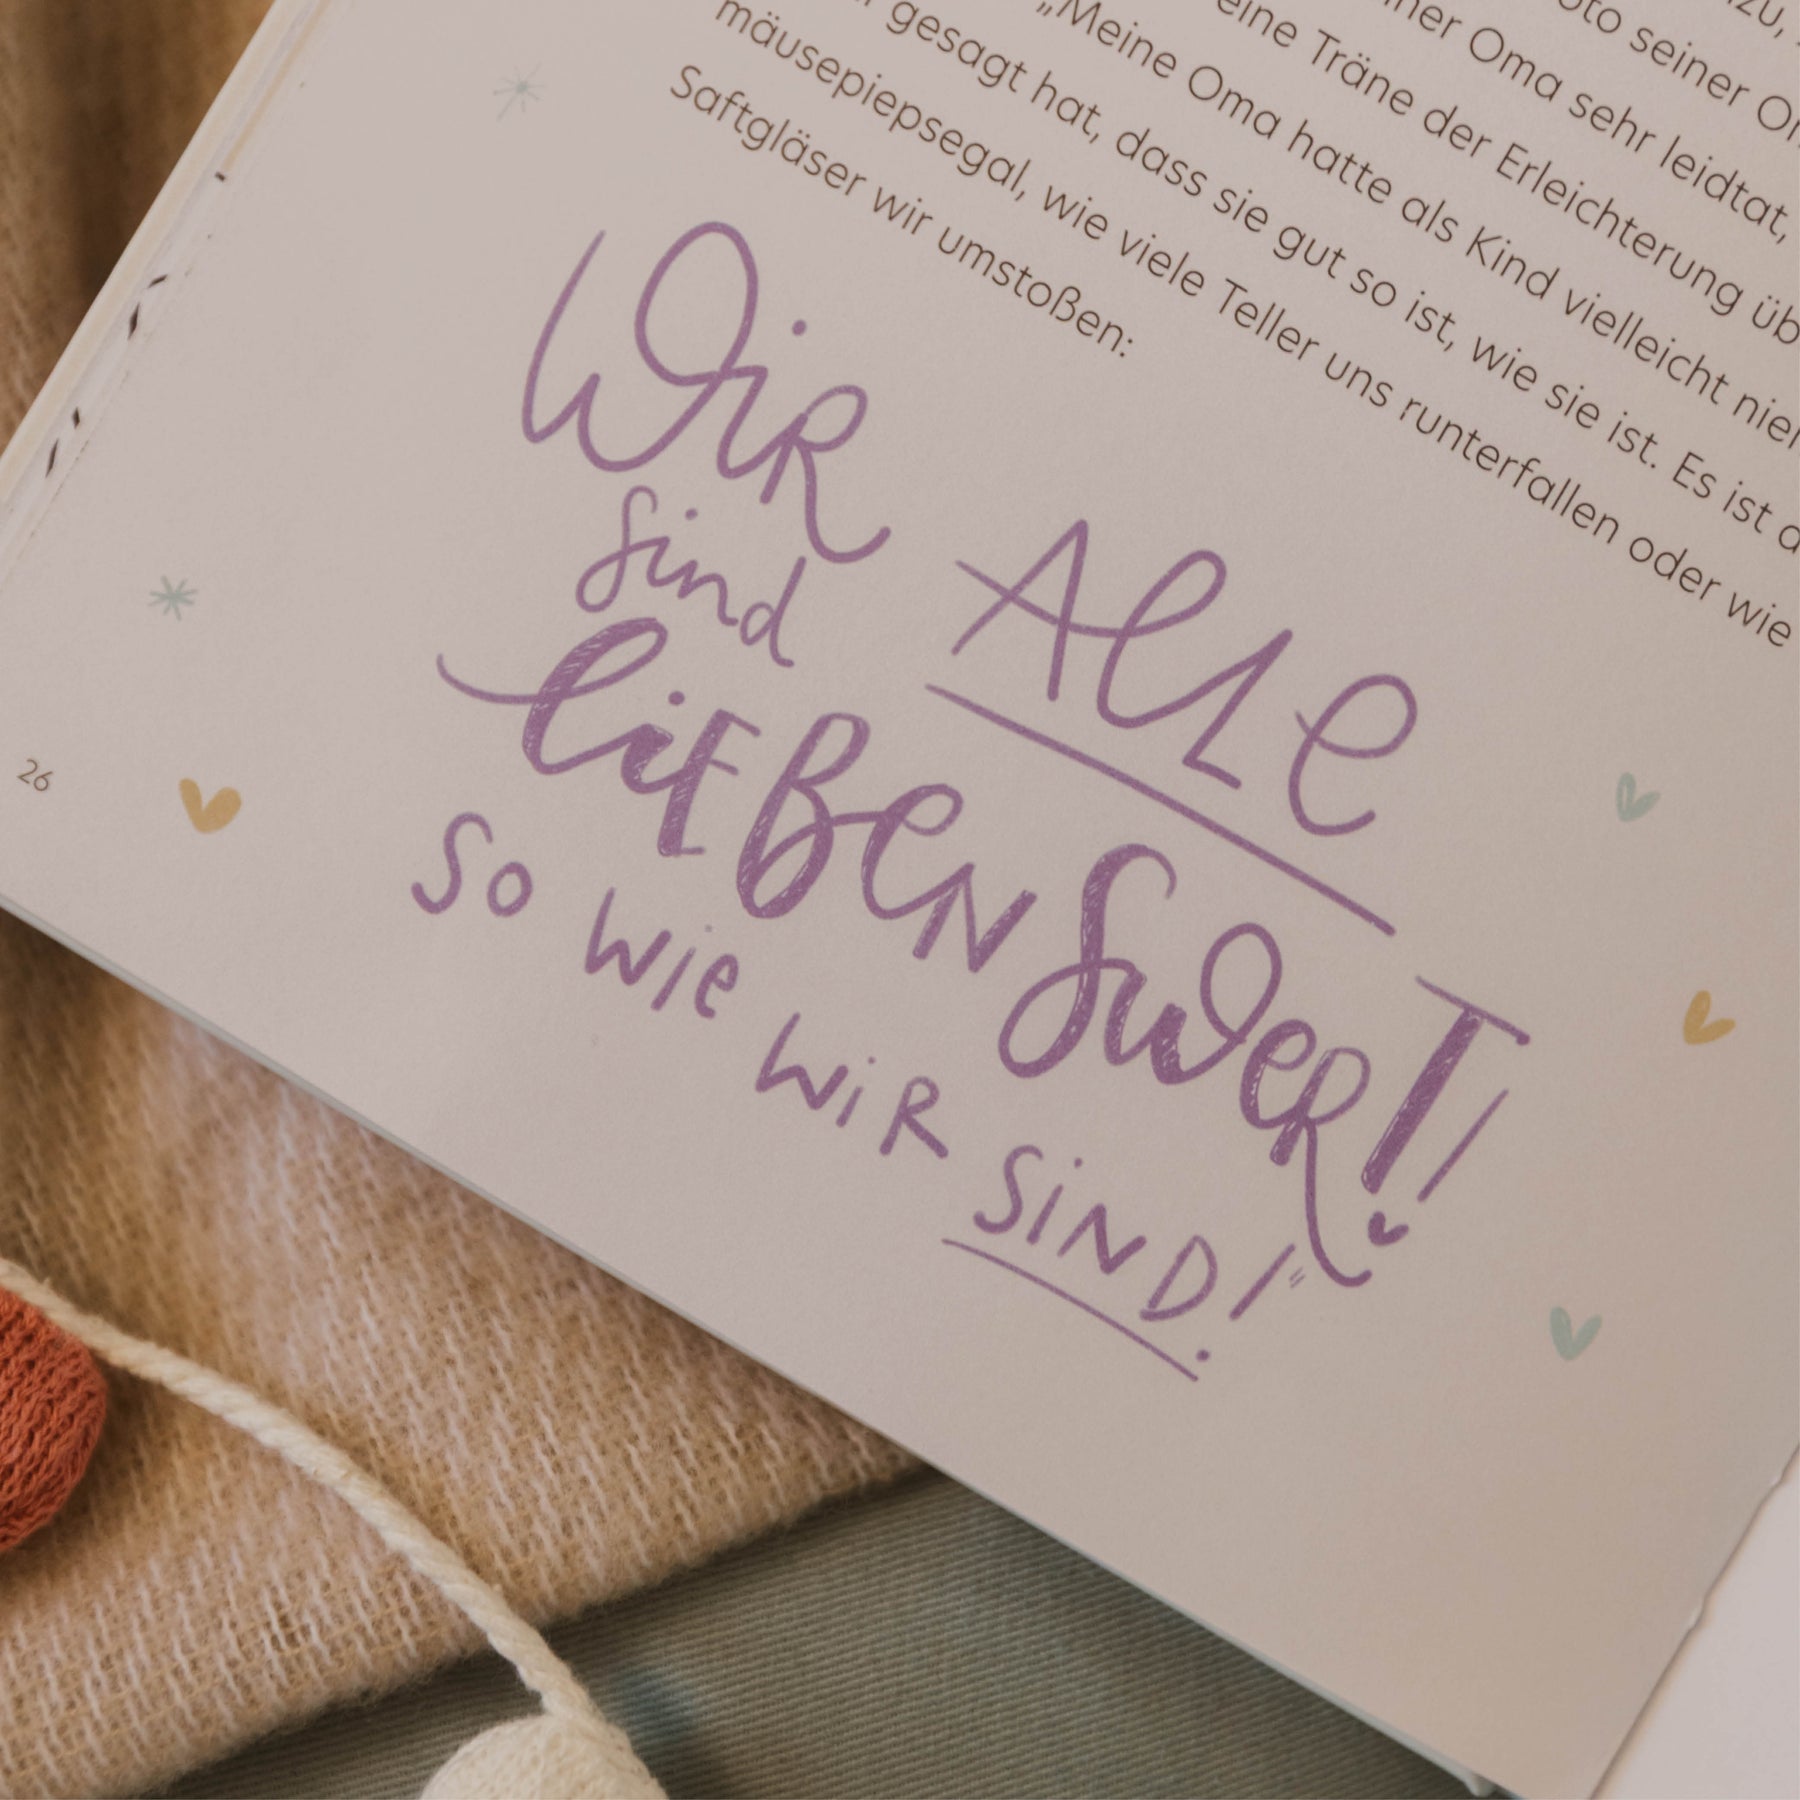 zu,
seiner
Oma sehr leidtat,
eine Träne der Erleichterung
„Meine Oma hatte als Kind vielleicht
gesagt hat, dass sie gut so ist, wie sie ist. Es ist
mäusepiepsegal, wie viele Teller uns runterfallen oder wie
Saftgläser wir umstoßen:
WiR ALLE
sind
LiEBENSWERT!
SO Wie WiR SiND!“
26